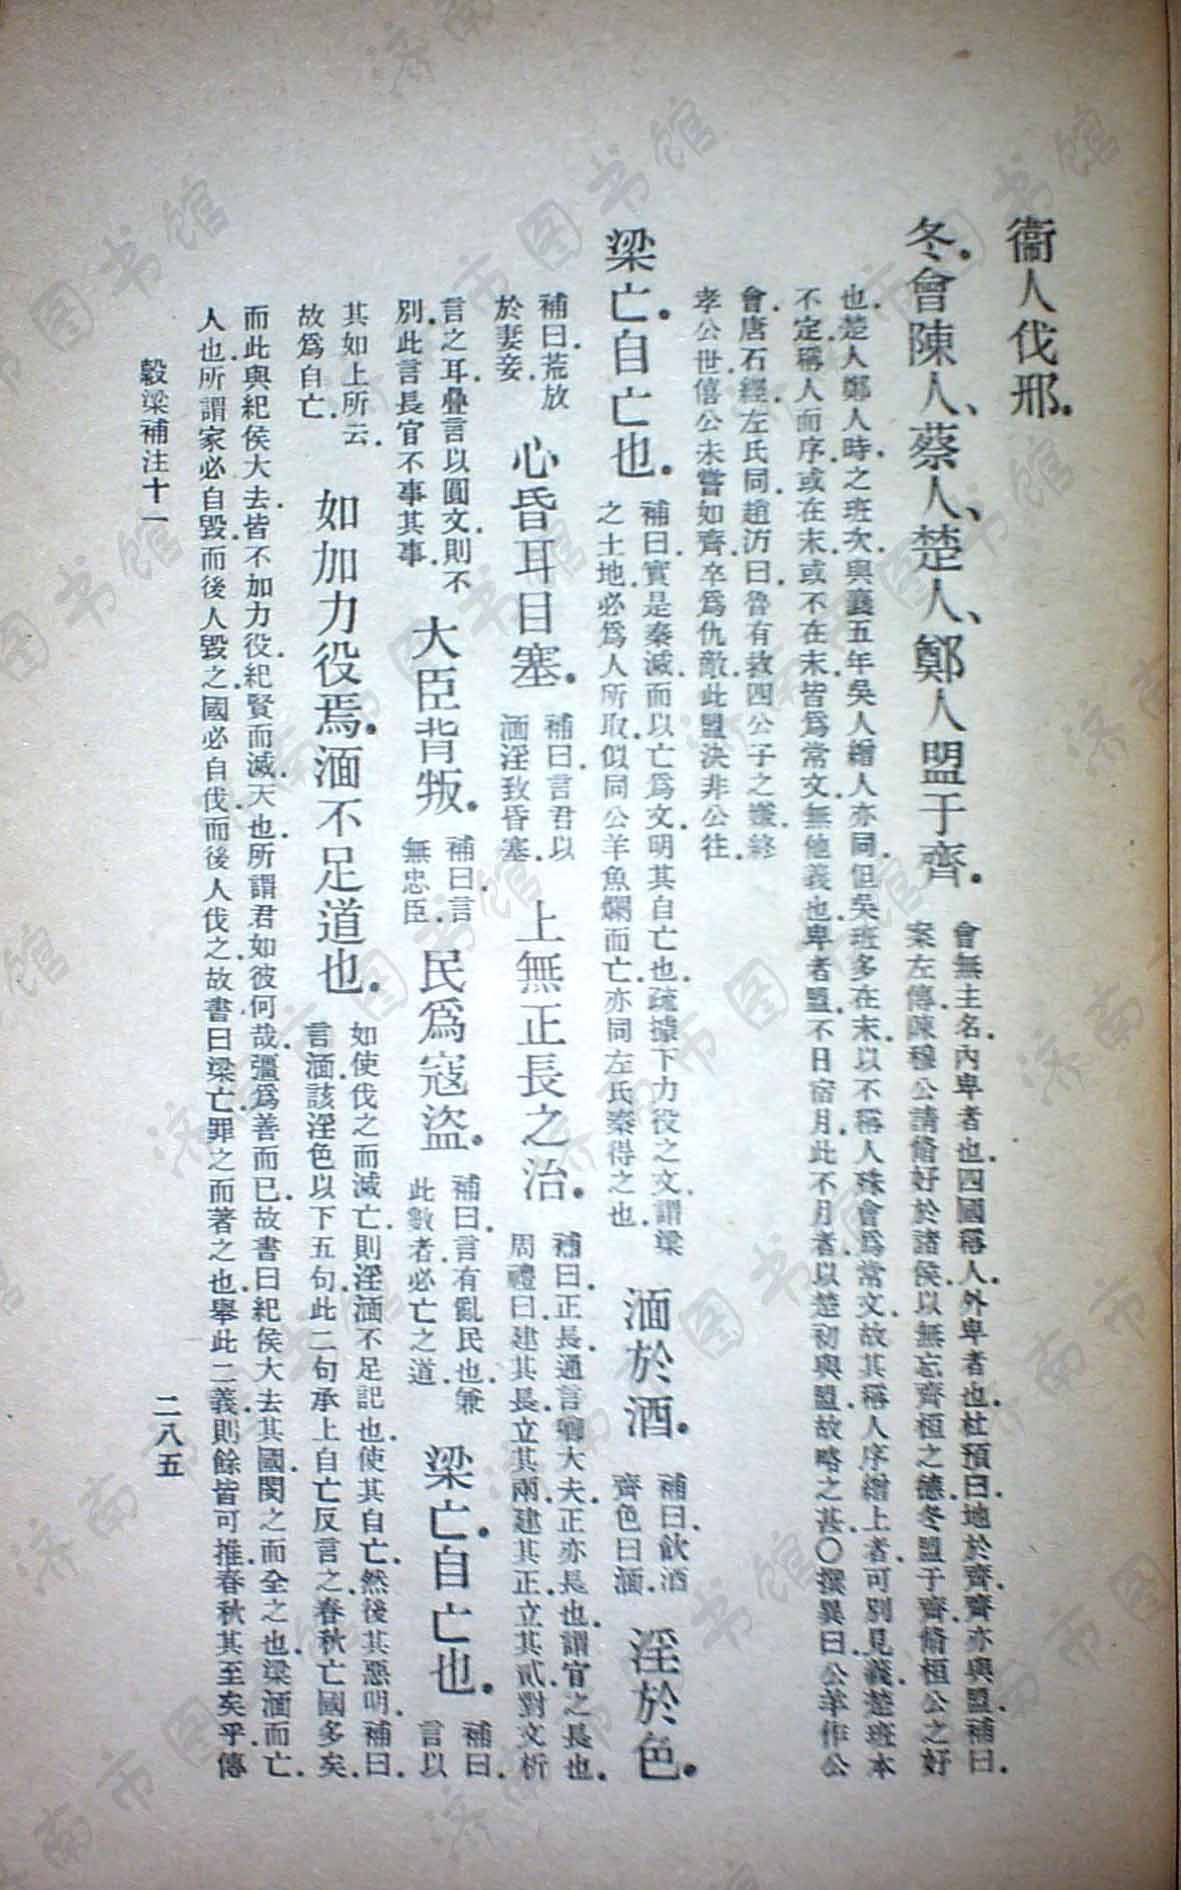 衞人伐邢。
冬。會陳人、蔡人、楚人、鄭人盟于齊。會無主名。內卑者也。四國稱人。外卑者也。杜預曰。地於齊。齊亦與盟。補曰。
案左傳。陳穆公請脩好於諸侯。以無忘齊桓之德。冬。盟于齊。脩桓公之好
也。楚人鄭人。時之班次。與襄五年吳人繒人亦同。但吳班多在末。以不稱人殊會爲常文。故其稱人序繒上者。可別見義。楚班本
不定。稱人而序。或在末。或不在末。皆爲常文。無他義也。卑者盟。不日宿月。此不月者。以楚初與盟。故略之甚。〇撰異曰。公羊作公
會。唐石經左氏同。趙汸曰。魯有救四公子之讎。終
孝公世。僖公未嘗如齊。卒爲仇敵。此盟決非公往。
梁亡。自亡也。補曰。實是秦滅。而以亡爲文。明其自亡也。疏據下力役之文。謂梁
之土地。必爲人所取。似同公羊魚爛而亡。亦同左氏秦得之也。湎於酒。補曰。飲酒
齊色曰湎。淫於色。
補曰。荒放
於妻妾。心昏耳目塞。補曰。言君以
湎淫致昏塞。上無正長之治。補曰。正長。通言卿大夫。正亦長也。謂官之長也。
周禮曰。建其長。立其兩。建其正。立其貳。對文析
言之耳。疊言以圓文。則不
別。此言長官不事其事。大臣背叛。補曰。言
無忠臣。民爲寇盜。補曰。言有亂民也。兼
此數者。必亡之道。梁亡。自亡也。補曰。
言以
其如上所云。
故爲自亡。如加力役焉。湎不足道也。如使伐之而滅亡。則淫湎不足記也。使其自亡。然後其惡明。補曰。
言湎。該淫色以下五句。此二句承上自亡反言之。春秋亡國多矣。
而此與紀侯大去。皆不加力役。紀賢而滅。天也。所謂君如彼何哉。彊爲善而已。故書曰紀侯大去其國。閔之而全之也。梁湎而亡。
人也。所謂家必自毀。而後人毀之。國必自伐。而後人伐之。故書曰梁亡。罪之而著之也。舉此二義。則餘皆可推。春秋其至矣乎。傳
穀梁補注十一
二八五